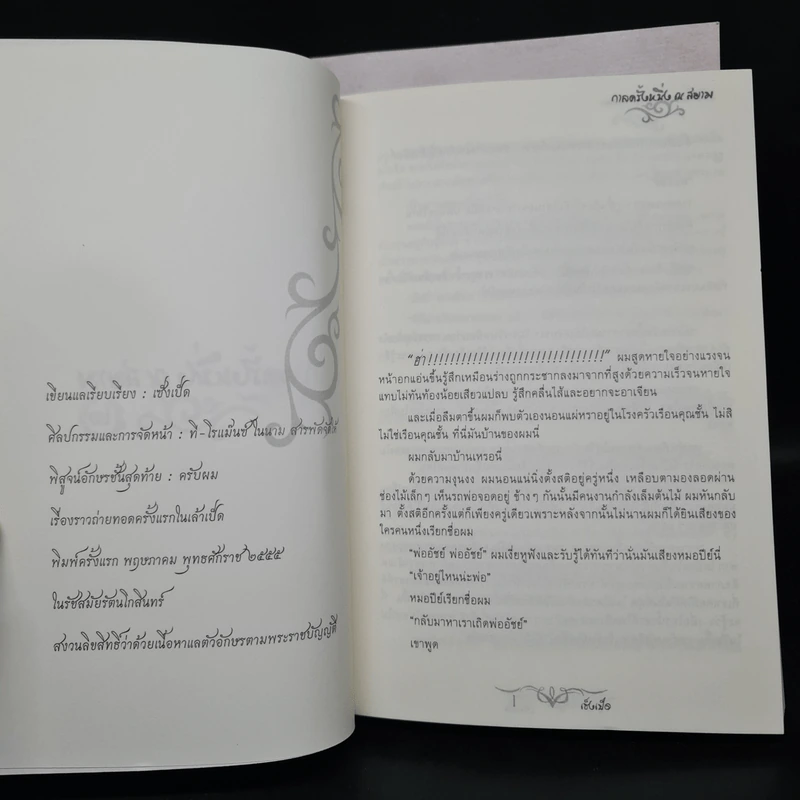 เขียนแลเรียบเรียง : เซ็งเป็ด
ศิลปกรรมและการจัดหน้า : ที-โรแม๊นซ์ ในนาม สารพัดจัดให้
พิสูจน์อักษรขั้นสุดท้าย : ครับผม
เรื่องราวถ่ายทอดครั้งแรกในเล้าเป็ด
พิมพ์ครั้งแรก พฤษภาคม พุทธศักราช ๒๕๕๕
ในรัชสมัยรัตนโกสินทร์
สงวนลิขสิทธิ์ว่าด้วยเนื้อหาแลตัวอักษรตามพระราชบัญญัติ
กาลครั้งหนึ่ง ณ สยาม
“ฮ่า!!!!!!!!!!!!!!!!!!!!!!!!!!!!!!!!” ผมสูดหายใจอย่างแรงจน
หน้าอกแอ่นขึ้นรู้สึกเหมือนร่างถูกกระชากลงมาจากที่สูงด้วยความเร็วจนหายใจ
แทบไม่ทันท้องน้อยเสียวแปลบ รู้สึกคลื่นไส้และอยากจะอาเจียน
และเมื่อลืมตาขึ้นผมก็พบตัวเองนอนแผ่หราอยู่ในโรงครัวเรือนคุณชั้น ไม่สิ
ไม่ใช่เรือนคุณชั้น ที่นี่มันบ้านของผมนี่
ผมกลับมาบ้านเหรอนี่
ด้วยความงุนงง ผมนอนแน่นิ่งตั้งสติอยู่ครู่หนึ่ง เหลือบตามองลอดผ่าน
ช่องไม้เล็กๆ เห็นรถพ่อจอดอยู่ ข้างๆ กันนั้นมีคนงานกำลังเล็มต้นไม้ ผมหันกลับ
มา ตั้งสติอีกครั้งแต่ก็เพียงครู่เดียวเพราะหลังจากนั้นไม่นานผมก็ได้ยินเสียงของ
ใครคนหนึ่งเรียกชื่อผม
“พ่ออัชย์ พ่ออัชย์” ผมเงี่ยหูฟังและรับรู้ได้ทันทีว่านั่นมันเสียงหมอปีย์นี่
“เจ้าอยู่ไหนน่ะพ่อ”
หมอปีย์เรียกชื่อผม
“กลับมาหาเราเถิดพ่ออัชย์”
เขาพูด
1
เซ็งเป็ด